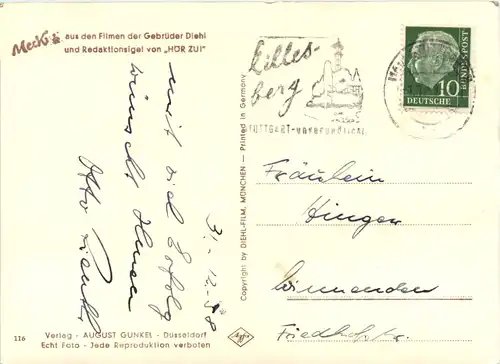 Mecki aus den Filmen der Gebrüder Diehl
und Redaktionsigel von „HÖR ZU!"
Killes-
berg
STUTTGART-
10
DEUTSCHE
BUNDESPOST
31.12.58
mit viel Erfolg
wünscht Ihnen
Otto
Fräulein
Hinger
Winnenden
Friedhofstr.
Copyright by DIEHL-FILM, MÜNCHEN — Printed in Germany
116
Verlag - AUGUST GUNKEL - Düsseldorf
Echt Foto - Jede Reproduktion verboten
Agfa